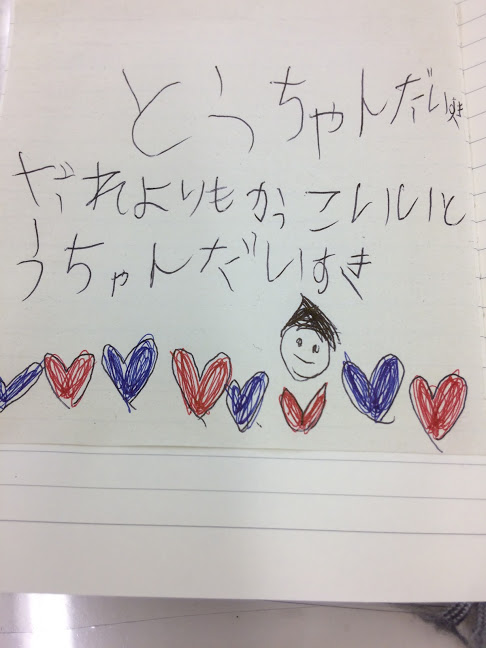 とうちゃんだいすき
だれよりもかっこいいと
うちゃんだいすき